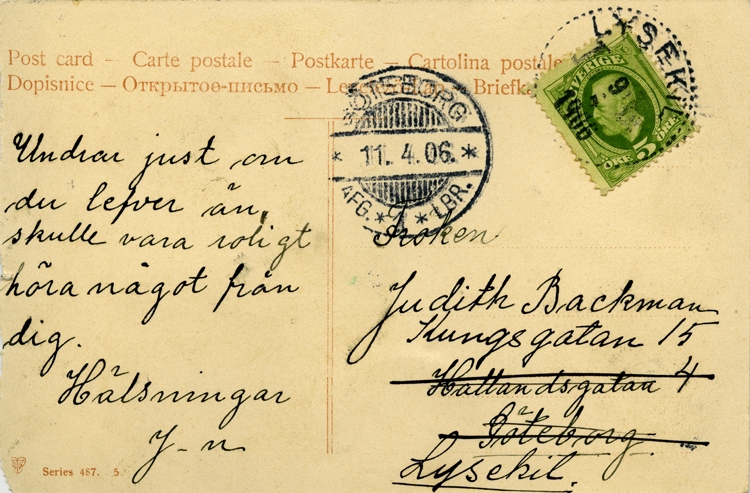 Post card — Carte postale — Postkarte — Cartolina postale
Dopisnice — Открытое-письмо —
Undrar just om
du lefver än,
skulle vara roligt
höra något från
dig.
Hälsningar
J-n
Series 487. 5.
GÖTEBORG
* 11. 4. 06. *
AFG. * * LBR.
LYSEKIL
1906
SVERIGE
5 ÖRE
Fröken
Judith Backman
Kungsgatan 15
Hallandsgatan 4
Göteborg
Lysekil.